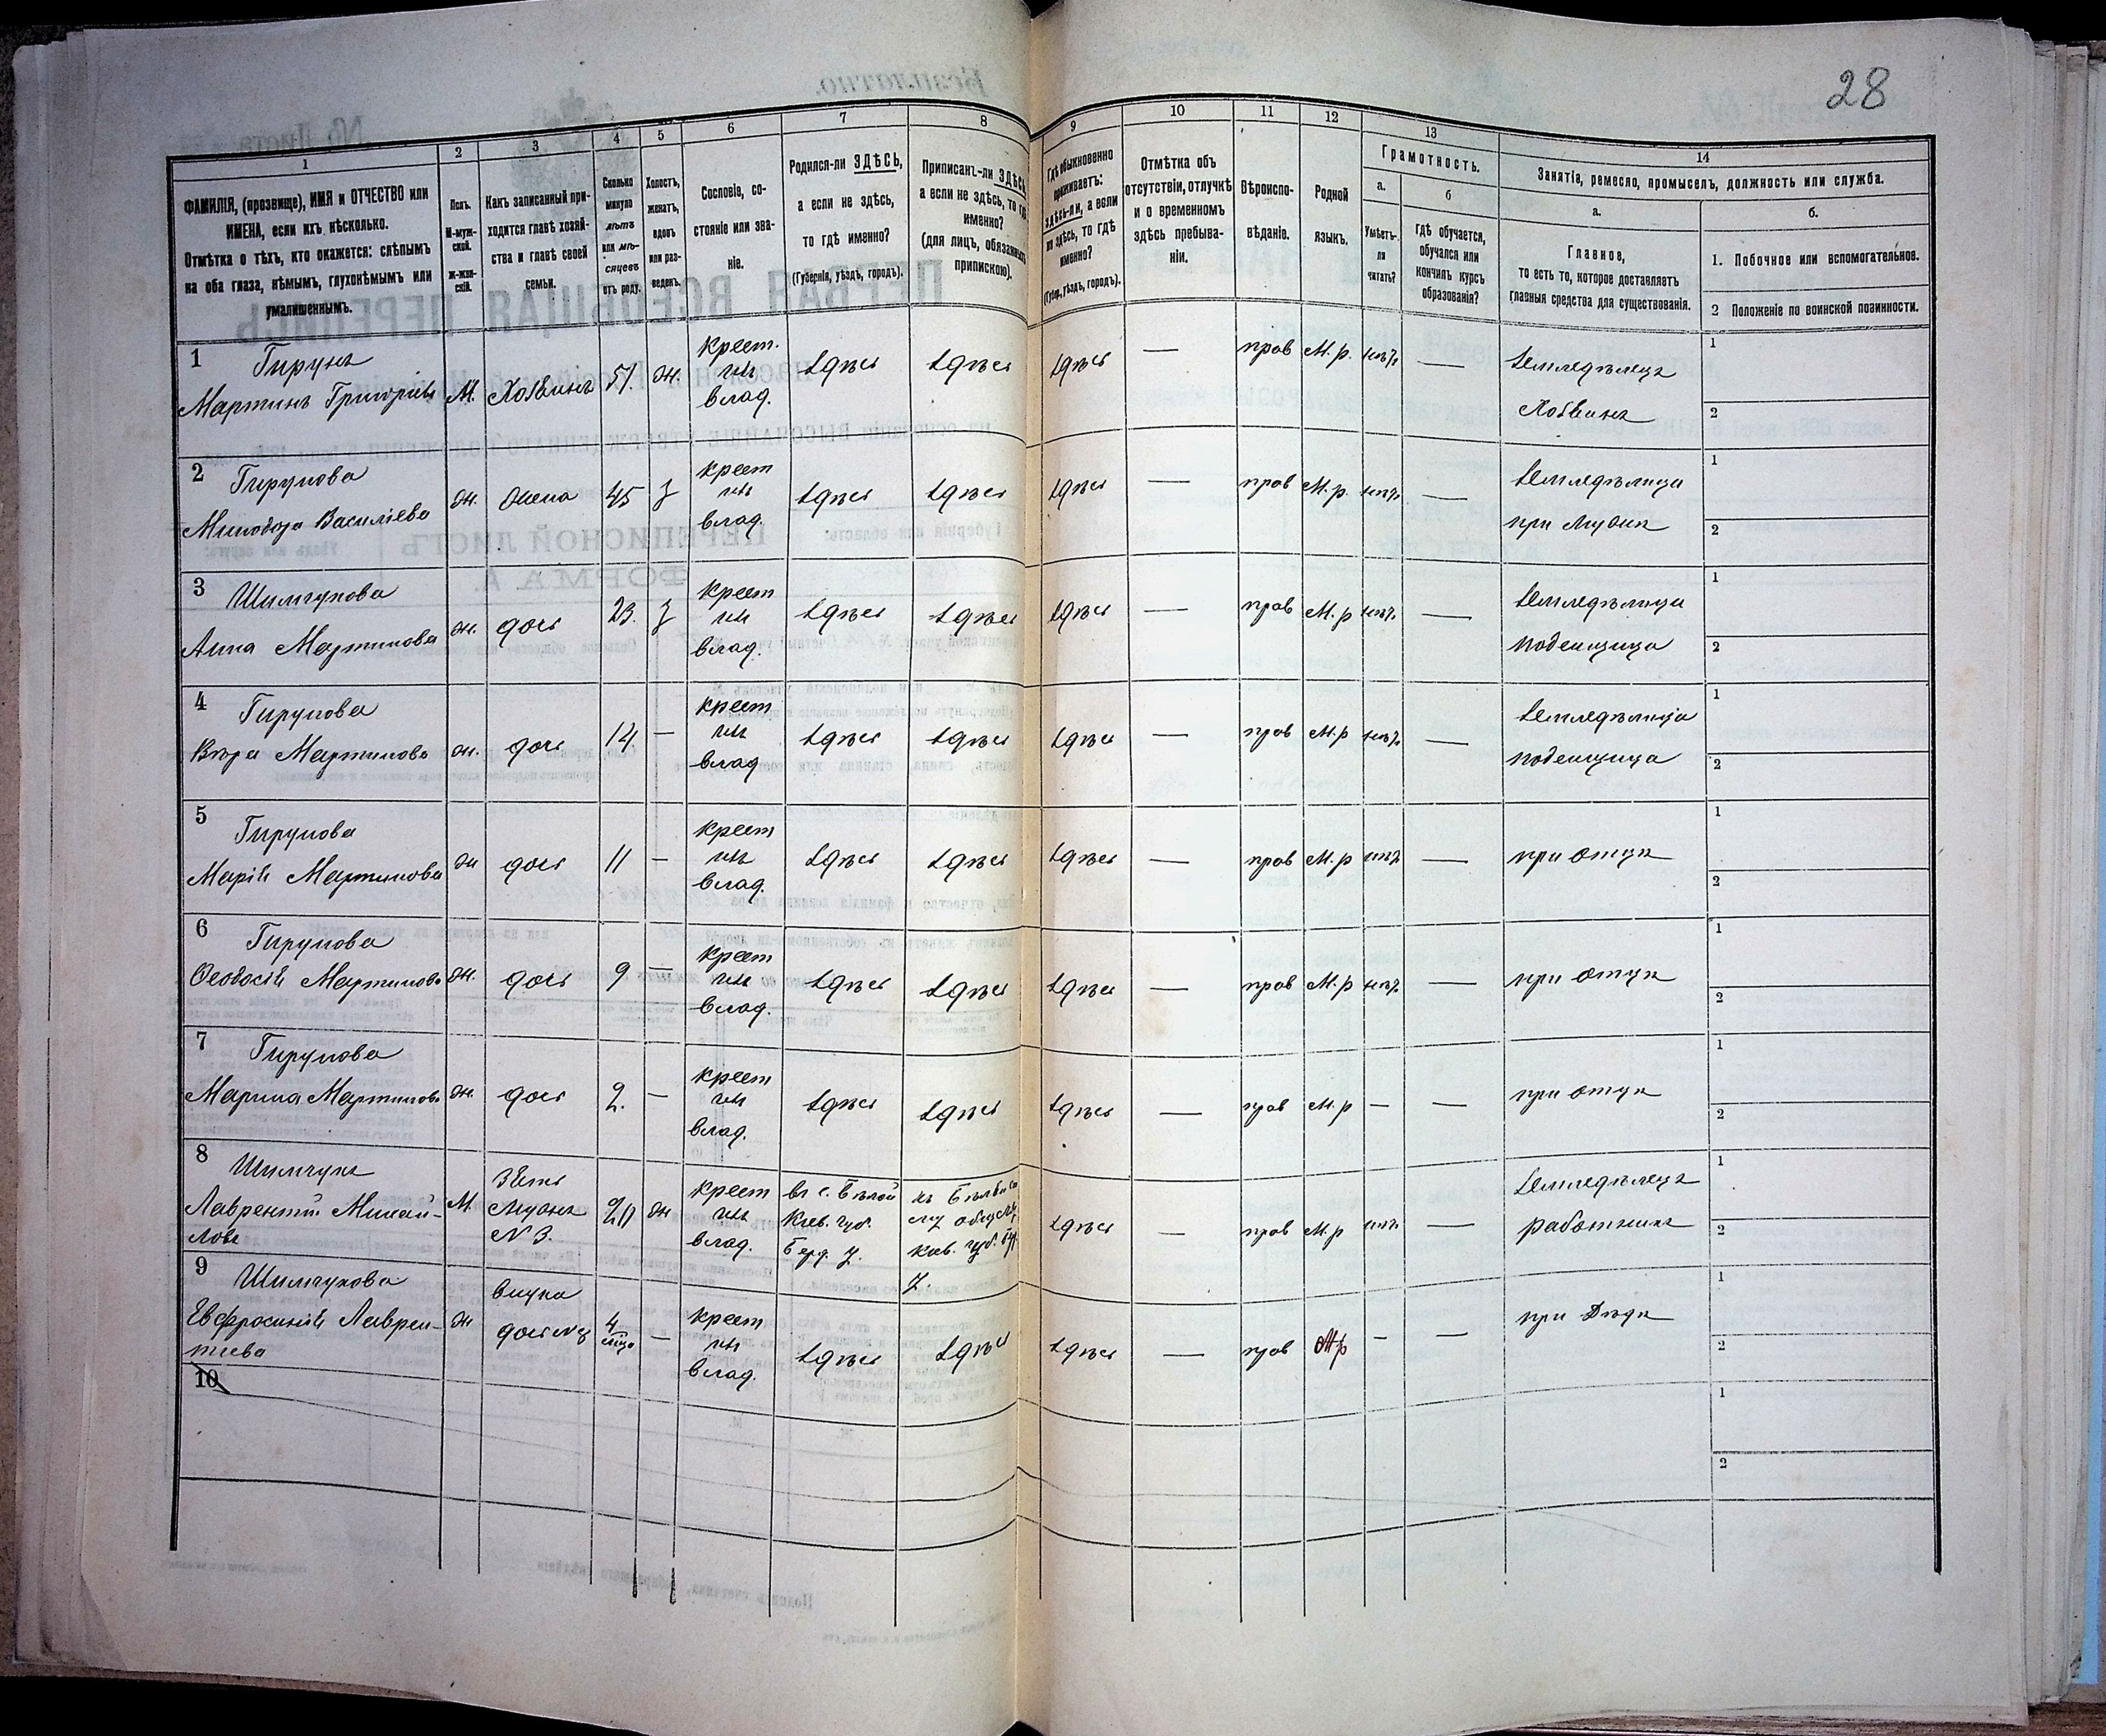 28
1
2
3
4
5
6
7
8
9
10
11
12
13
14
ФАМИЛІЯ, (прозвище), ИМЯ и ОТЧЕСТВО или
ИМЕНА, если ихъ нѣсколько.
Отмѣтка о тѣхъ, кто окажется: слѣпымъ
на оба глаза, нѣмымъ, глухонѣмымъ или
умалишеннымъ.
Полъ.
М-муж-
ской.
Ж-жен-
скій.
Какъ записанный при-
ходится главѣ хозяй-
ства и главѣ своей
семьи.
Сколько
минуло
лѣтъ
или мѣ-
сяцевъ
отъ роду.
Холостъ,
женатъ,
вдовъ
или раз-
веденъ.
Сословіе, со-
стояніе или зва-
ніе.
Родился-ли ЗДѢСЬ,
а если не здѣсь,
то гдѣ именно?
(Губернія, уѣздъ, городъ).
Приписанъ-ли ЗДѢСЬ,
а если не здѣсь, то гдѣ
именно?
(для лицъ, обязанныхъ
припискою).
Гдѣ обыкновенно
проживаетъ:
ЗДѢСЬ-ЛИ, а если
не здѣсь, то гдѣ
именно?
(Губер., уѣздъ, городъ).
Отмѣтка объ
отсутствіи, отлучкѣ
и о временномъ
здѣсь пребыва-
ніи.
Вѣроиспо-
вѣданіе.
Родной
языкъ.
Грамотность.
а.
б
Умѣетъ-
ли
читать?
гдѣ обучается,
обучался или
кончилъ курсъ
образованія?
Занятіе, ремесло, промыселъ, должность или служба.
а.
б.
Главное,
то есть то, которое доставляетъ
главныя средства для существованія.
1. Побочное или вспомогательное.
2 Положеніе по воинской повинности.
1 Гирунъ
Мартинъ Григоріевъ М. Хозяинъ 51. Ж. Крест. изъ влад. здѣсь здѣсь здѣсь — прав М. р. нѣтъ — Земледѣлецъ
Хозяинъ
1
2
2 Гирунова
Василіева ж. Жена 45 З крест изъ влад. здѣсь здѣсь здѣсь — прав М. р. нѣтъ — Земледѣлица
при Мужѣ
1
2
3 Шимчукова
Анна Мартинова ж. дочь 23. З крест изъ влад. здѣсь здѣсь здѣсь — прав М. р нѣтъ — Земледѣлица
поденщица
1
2
4 Гирунова
Вѣра Мартинова ж. дочь 14 — крест изъ влад здѣсь здѣсь здѣсь — прав М. р нѣтъ — Земледѣлица
поденщица
1
2
5 Гирунова
Марія Мартинова ж дочь 11 — крест изъ влад. здѣсь здѣсь здѣсь — прав М. р нѣтъ — при отцѣ
1
2
6 Гирунова
Ѳеодосія Мартинова ж. дочь 9 — крест изъ влад. здѣсь здѣсь здѣсь — прав М. р нѣтъ — при отцѣ
1
2
7 Гирунова
Марина Мартинова ж. дочь 2. — крест изъ влад. здѣсь здѣсь здѣсь — прав М. р — — при отцѣ
1
2
8 Шимчукъ
Лаврентій Михай-
ловъ М. Зять
Мужъ
N 3. ж крест изъ влад. въ с. Бѣлой
Кіев. губ.
Берд. у.
здѣсь — прав М. р нѣтъ — Земледѣлецъ
работникъ
1
2
9 Шимчукова
Евфросинія Лаврен-
тіева ж внука
4 — крест изъ влад. здѣсь здѣсь здѣсь — прав М. р — — при Дѣдѣ
1
2
10
1
2